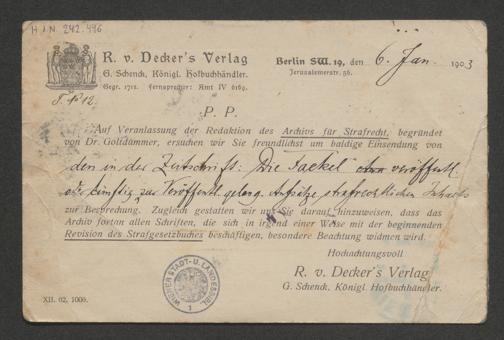 H I N 242.496
R. v. Decker's Verlag
G. Schenck, Königl. Hofbuchhändler.
Gegr. 1713. Fernsprecher: Amt IV 6169.
Berlin SW. 19, den 6. Jan. 1903
Jerusalemerstr. 56.
P. P.
Auf Veranlassung der Redaktion des Archivs für Strafrecht, begründet
von Dr. Goltdammer, ersuchen wir Sie freundlichst um baldige Einsendung von
den in der Zeitschrift: "Die Fackel" veröffentl.
oder künftig zur Veröffentl. gelang. Aufsätze strafrechtlichen Inhalts
zur Besprechung. Zugleich gestatten wir uns Sie darauf hinzuweisen, dass das
Archiv fortan allen Schriften, die sich in irgend einer Weise mit der beginnenden
Revision des Strafgesetzbuches beschäftigen, besondere Beachtung widmen wird.
Hochachtungsvoll
R. v. Decker's Verlag
G. Schenck, Königl. Hofbuchhändler.
WIENER STADT-U. LANDESBIBL.
XII. 02. 1000.